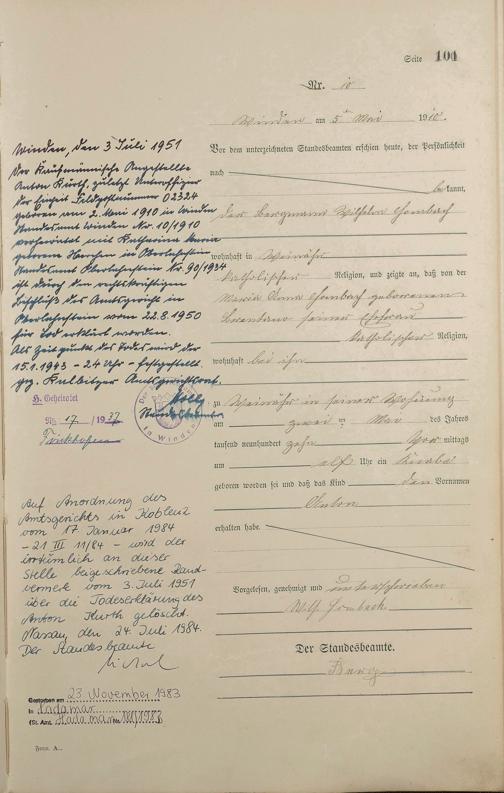 Seite 101
Nr. 10
Winden am 5ten Mai 1910.
Vor dem unterzeichneten Standesbeamten erschien heute, der Persönlichkeit
nach
bekannt,
der Bergmann Wilhelm
wohnhaft in Weinähr
katholischer Religion, und zeigte an, daß von der
Maria Anna geborenen
seiner Ehefrau
katholischer Religion,
wohnhaft bei ihm
zu Weinähr in seiner Wohnung
am zwei ten Mai des Jahres
tausend neunhundert zehn Vor mittags
um elf Uhr ein Knabe
geboren worden sei und daß das Kind den Vornamen
Anton
erhalten habe.
Vorgelesen, genehmigt und unterschrieben
Wilh.
Der Standesbeamte.
Winden, den 3 Juli 1951
Der Kaufmännische Angestellte
Anton Kurth, zuletzt Unteroffizier
der Einheit Feldpostnummer 02324
geboren am 2. Mai 1910 in Winden
Standesamt Winden Nr. 10/1910
verheiratet mit Katharina Maria
geborene in Oberlahnstein
Standesamt Oberlahnstein Nr. 90/1934
ist durch den rechtskräftigen
Beschluß des Amtsgericht in
Oberlahnstein vom 22.8.1950
für tod erklärt worden.
Als Zeitpunkt des Todes wird der
15.1.1943 - 24 Uhr - festgestellt.
gez. Kalbitzer Amtsgerichtsrat.
Standesbeamter
in Winden
H. Geheiratet
Nr. 17 / 1937
Auf Anordnung des
Amtsgerichts in Koblenz
vom 17 Januar 1984
- 21 III 11/84 - wird der
irrtümlich an dieser
Stelle beigeschriebene Rand-
vermerk vom 3. Juli 1951
über die Todeserklärung des
Anton Kurth gelöscht.
Nassau, den 24. Juli 1984.
Der Standesbeamte
Gestorben am 23 November 1983
in Hadamar
(St. Amt Hadamar Nr. /1983
Form. A..